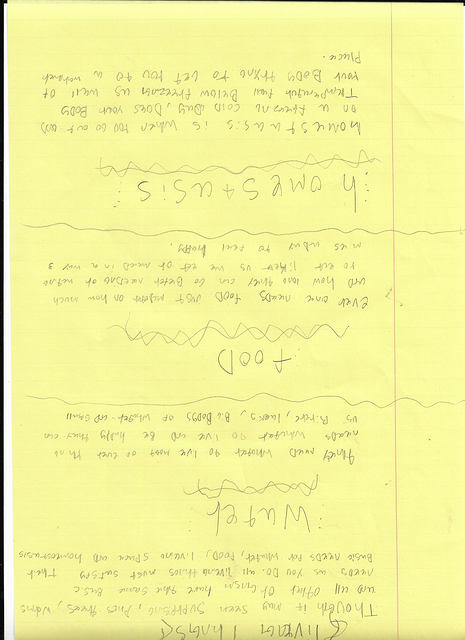 Livengi Thngs
Though it may seen supprsing, Pits, trees, worms,
and all of other have the same Basc
needs as you Do. all livend things must satisfy their
Basic needs for whater, food, livend space and homeostasis
Water
they need whater to live most of ever thing
needs whater to live and be happy they can
us Rivere, lakes, Big Bodys of whater and small
food
Ever one needs food just on how much
and how long they can go befer needsng or
to eat it like us we eat in a way 3
mes a day to feel happy.
homestasis
homestasis is when you go out
on a freesng cold day, Does your Body
Temperatur fall Below freezing as well of
your Body tryng to get you to a
Place.